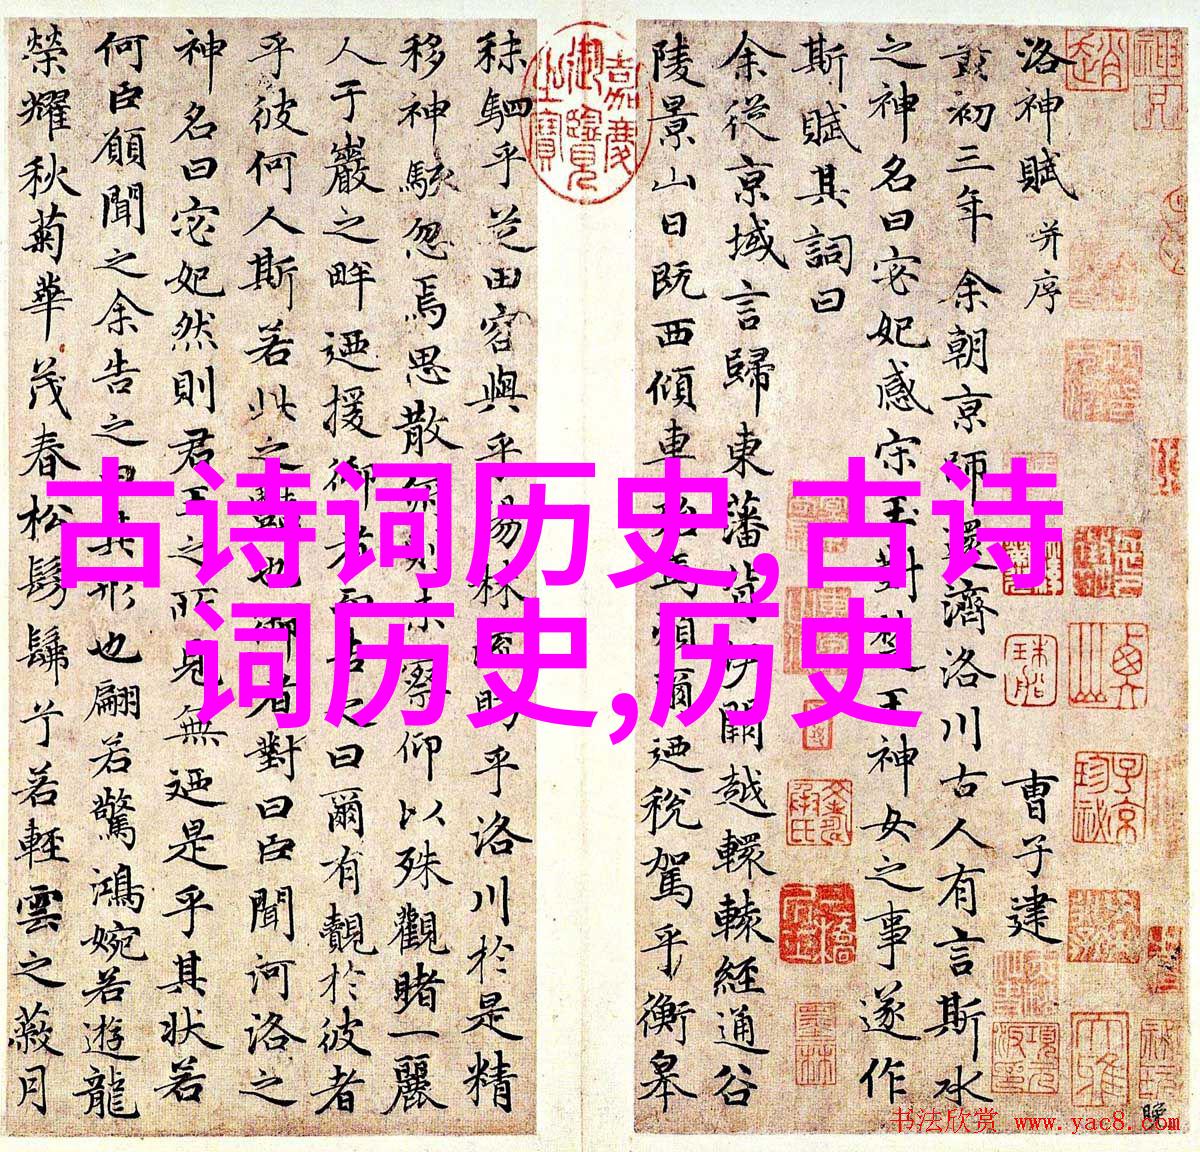 古诗词历史,古诗
词历史,历史
洛神賦 并序 曹子建
黃初三年余朝京師還濟洛川古人有言斯水
之神名曰宓妃感宋玉對楚王神女之事遂作
斯賦其詞曰
余從京域言歸東藩背伊闕越轘轅經通谷
陵景山日既西傾車殆馬煩爾迺稅駕乎衡皋
秣駟乎芝田容與乎楊林流眄乎洛川於是精
移神駭忽焉思散俯則未察仰以殊觀睹一麗
人于巖之畔迺援御者而告之曰爾有覿於彼者
乎彼何人斯若此之豔也御者對曰臣聞河洛之
神名曰宓妃然則君王之所見無迺是乎其狀若
何臣願聞之余告之曰其形也翩若驚鴻婉若遊龍
榮耀秋菊華茂春松髣髴兮若輕雲之蔽月
嘉慶御覽之寶
书法欣赏 www.yac8.com